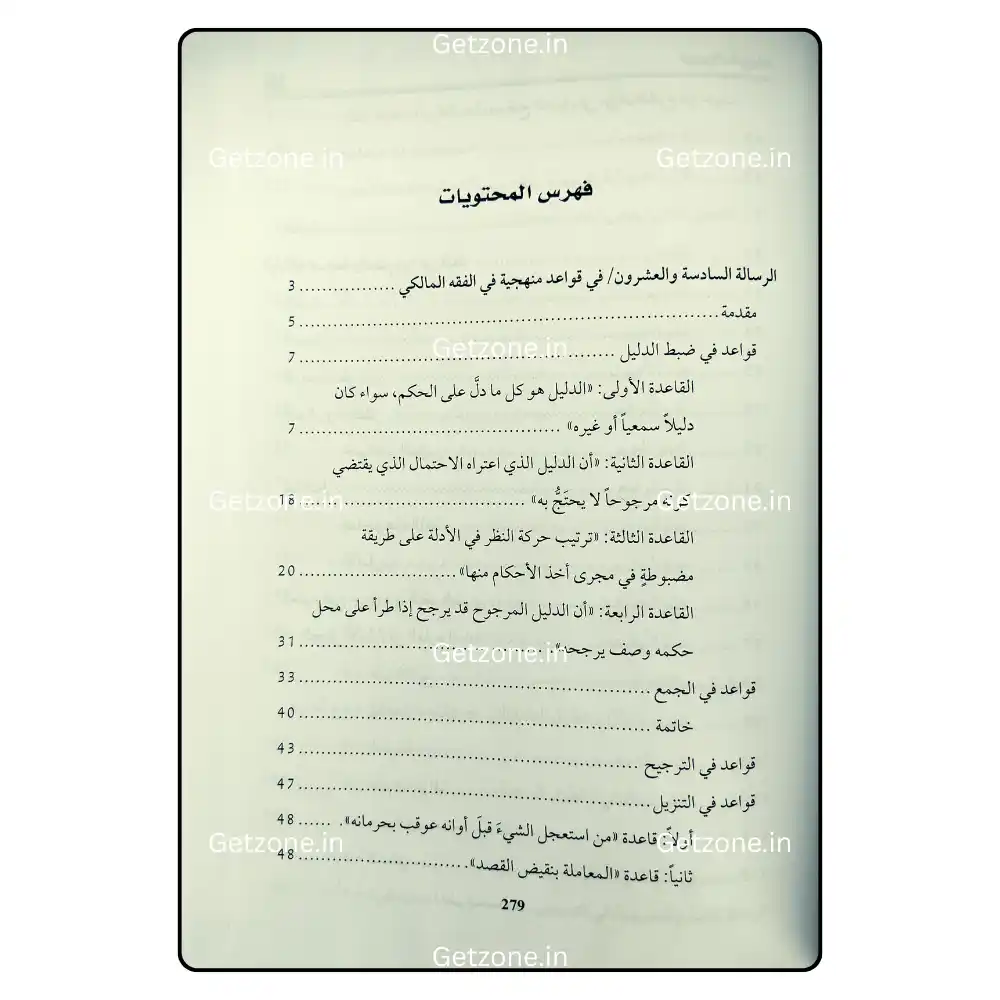 Getzone.in
Getzone.in
Getzone.in
فهرس المحتويات
الرسالة السادسة والعشرون/ في قواعد منهجية في الفقه المالكي ................. 3
مقدمة ........................................................................... 5
Getzone.in
قواعد في ضبط الدليل ........................................................ 7
القاعدة الأولى: «الدليل هو كل ما دلَّ على الحكم، سواء كان
دليلاً سمعياً أو غيره» ............................................... 7
القاعدة الثانية: «أن الدليل الذي اعتراه الاحتمال الذي يقتضي
Getzone.in
Getzone.in
كونه مرجوحاً لا يحتَجُّ به» ........................................ 16
القاعدة الثالثة: «ترتيب حركة النظر في الأدلة على طريقة
مضبوطةٍ في مجرى أخذ الأحكام منها» ............................ 20
القاعدة الرابعة: «أن الدليل المرجوح قد يرجح إذا طرأ على محل
حكمه وصف يرجحه». ............................................ 31
Getzone.in
قواعد في الجمع ............................................................... 33
خاتمة ............................................................... 40
قواعد في الترجيح ............................................................. 43
قواعد في التنزيل ............................................................... 47
أولاً: قاعدة «من استعجل الشيءَ قبلَ أوانه عوقب بحرمانه». ...... 48
Getzone.in
Getzone.in
ثانياً: قاعدة «المعاملة بنقيض القصد». .............................. 48
279
Getzone.in